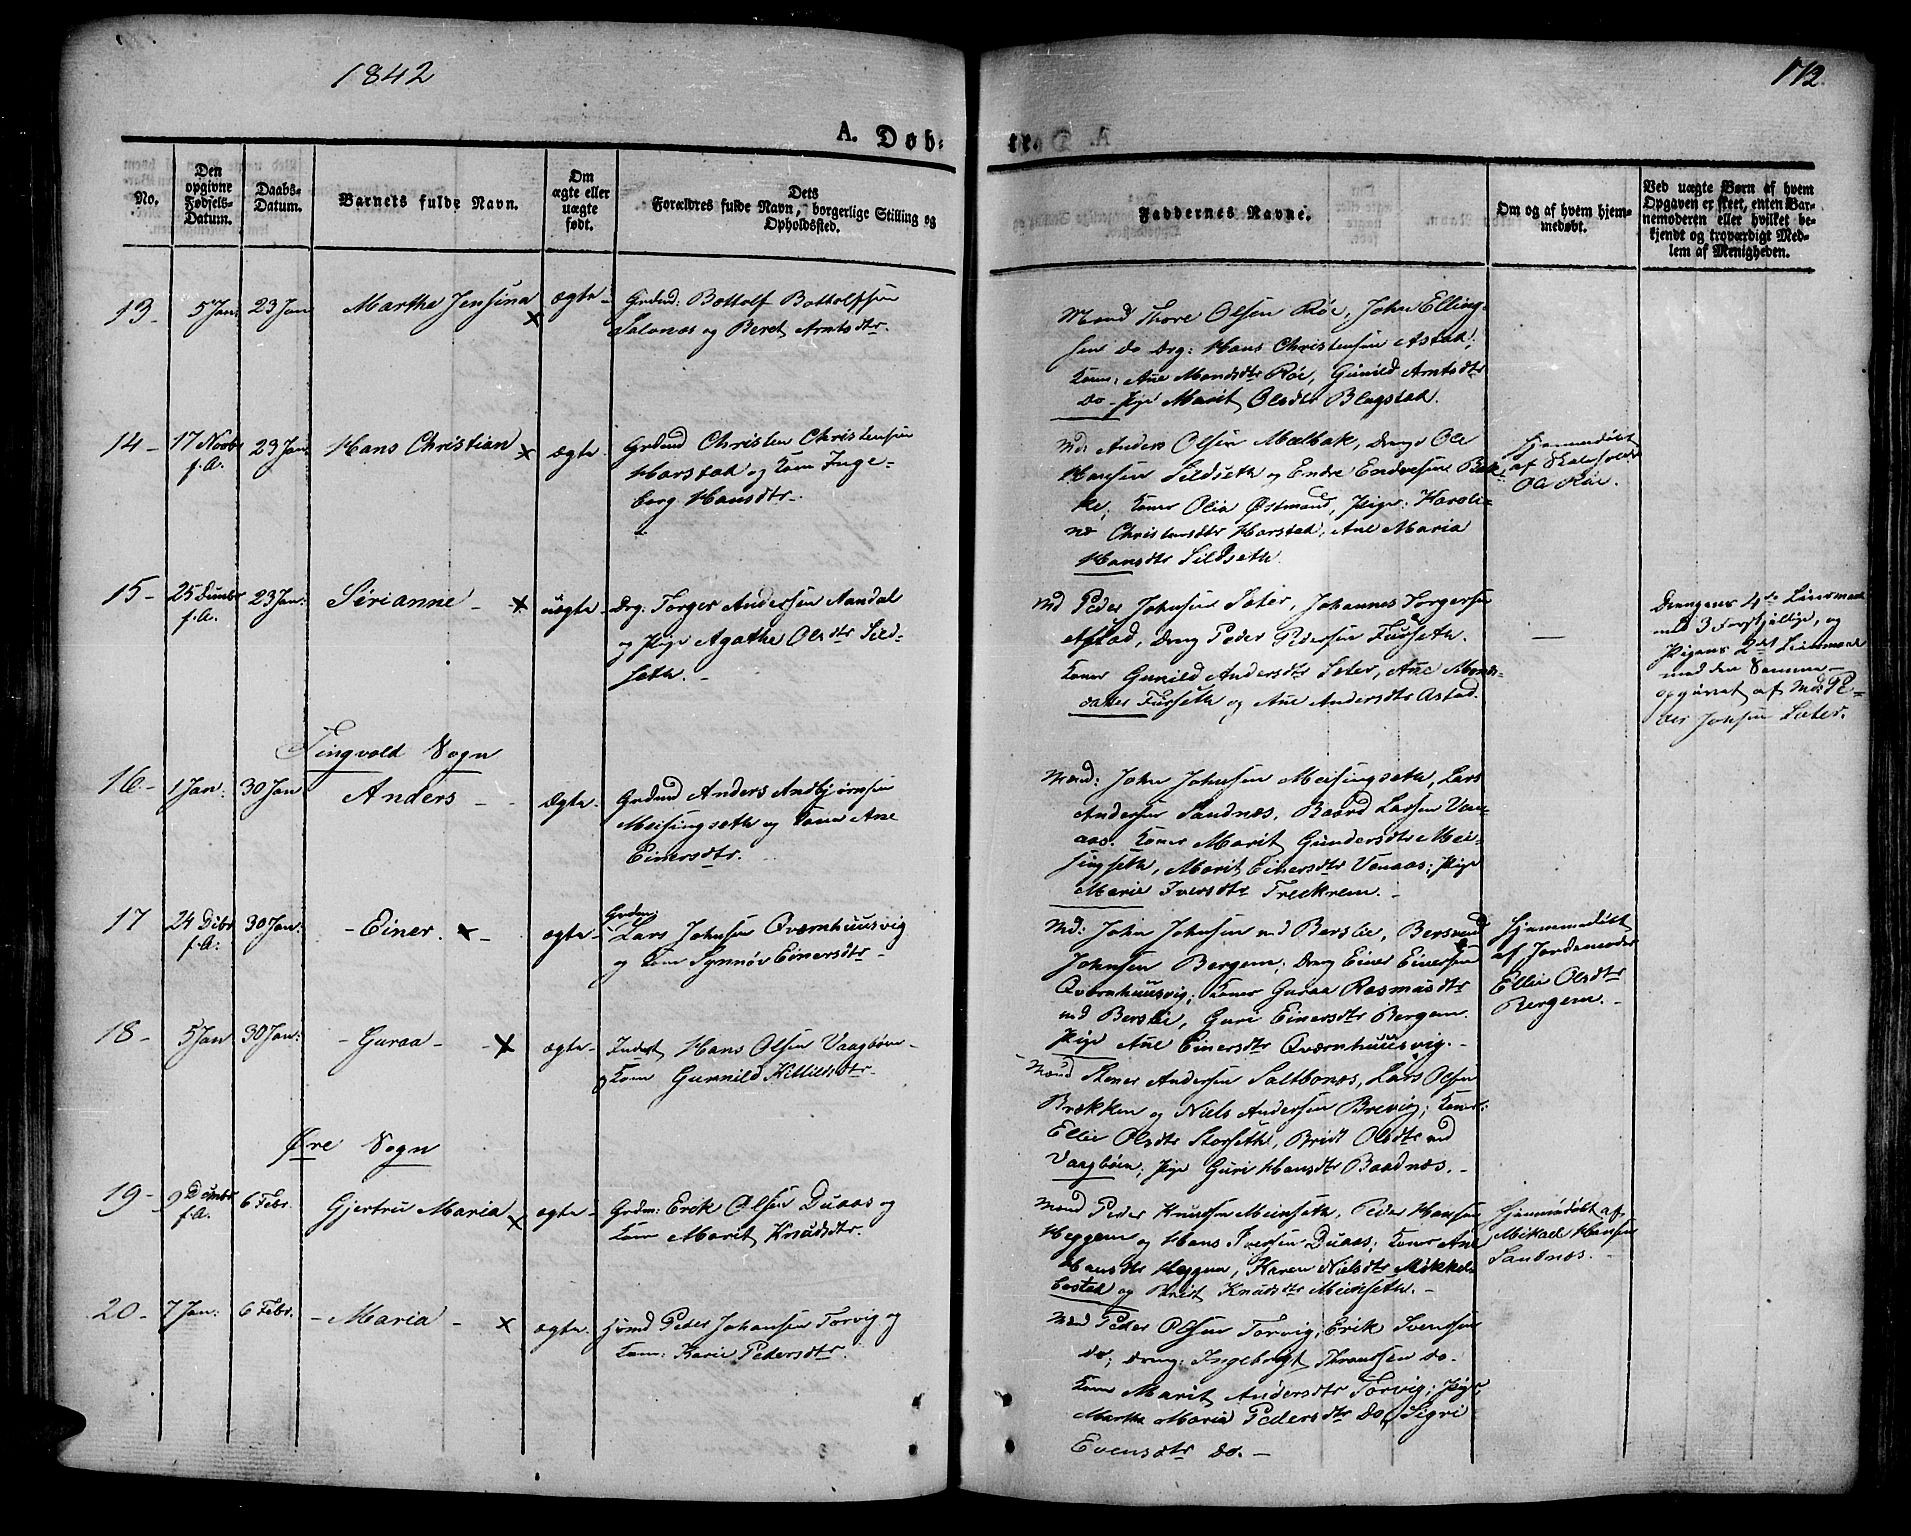 1842
172.
A. Døb-
te.
No.
Den opgivne Fødsels-Datum.
Daabs-Datum.
Barnets fulde Navn.
Om ægte eller uægte født.
Dets Forældres fulde Navn, borgerlige Stilling og Opholdssted.
Faddernes Navne.
Om og af hvem hjem-
medøbt.
Ved uægte Børn af hvem
Opgaven er skeet, enten Bar-
nemoderen eller hvilket be-
kjendt og troværdigt Med-
lem af Menigheden.
13 - 5 Jan: 23 Jan Martha Jensina x ægte - Grdmd: Bottolf Bottolfsen
og Beret Arntsdtr.
Mænd Thore Olsen Røe, John Elling-
sen do Drg: Hans Christensen Astad;
Koner: Ane Mondsdtr Røe, Gunild Arntsdtr
do - Pige Marit Olsdtr Blegstad.
14 - 17 Novbr f.A. 23 Jan Hans Christian x ægte Grdmd Christen Christensen
Harstad og Kone Inge-
borg Hansdtr.
Md: Anders Olsen Mælbak, Drenge Ole
Hansen Sildseth og Endre Endresen Bak-
ke; Koner Olia Østmand, Piger: Haroli-
ne Christensdtr Harstad, Ane Maria
Hansdtr Sildseth.
Hjemmedøbt
af Skoleholder
Ole Røe.
15 - 25 Decembr f.A. 23 Jan: Sirianne - x uægte - Drg: Torger Andersen Aandal
og Pige Agathe Olsdtr Sild-
seth. -
Md Peder Johnsen Sæter, Johannes Torgersen
Astad, Dreng Peder Pedersen Furseth.
Koner Gunild Andersdtr Sæter, Ane Monds-
datter Furseth og Ane Andersdtr Astad.
—
Drengens 4de Leiermaal
med 3 Forskjellige, og
Pigens 2det Leiermaal
med den Samme -
opgivet af Md Pe-
der Johnsen Sæter.
Tingvold Sogn
16 - 1 Jan: 30 Jan Anders - - Ægte - Grdmd Anders Andbjørnsen
Meisingseth og Kone Ane
Einersdtr.
Mænd: John Johnsen Meisingseth, Lars
Andersen Sandnæs, Baard Larsen Van-
aas. Koner Marit Gundersdtr Mei-
singseth, Marit Einersdtr Vanaas; Pige
Marie Iversdtr Treekrem. -
17 24 Dcbr f.A. 30 Jan: - Einer. x - ægte - Grdm; Lars Johnsen Qværnhuusvig
og Kone Synnøv Einersdtr -
Md: John Johnsen nd Berslie, Bersvend
Johnsen Bergem; Dreng Einer Einersen
Qværnhuusvig; Koner Guraa Rasmusdtr
nd Berslie, Guri Einersdtr Bergem.
Pige Ane Einersdtr Qværnhuusvig. -
Hjemmedøbt
af Jordemoder
Ellie Olsdtr
Bergem. -
18 - 5 Jan 30 Jan: - Guraa - - x ægte - Inderst Hans Olsen Vaagbøen -
og Kone Gunnild Kittilsdtr -
Mænd Stener Andersen Saltbonæs, Lars Olsen
Brækken og Niels Andersen Brevig; Koner:
Ellie Olsdtr Storseth, Bridt Olsdtr nd
Vaagbøen; Pige Guri Hansdtr Baadnæs. -
Øre Sogn
19 - 9 Dcembr f.A. 6 Febr. Gjertru Maria x ægte - Grdm: Erik Olsen Duaas og
Kone Marit Knudsdtr.
Mænd Peder Knudsen Meinseth, Peder Hansen
Heggem og Hans Iversen Duaas; Koner Ane
Hansdtr Heggem, Karen Nielsdtr Mikkel-
bostad og Brit Knudsdtr Meinseth. -
Hjemmedøbt af
Mikael Hansen
Sandnæs. -
20 - 7 Jan: 6 Febr. - Maria - x ægte. Hsmd Peder Johansen Torvig og
Kone: Karie Pedersdtr.
Mænd Peder Olsen Torvig, Erik Svendsen
do; Dreng: Ingebrigt Throndsen do.
Koner Marit Andersdtr Torvig; Piger
Martha Maria Pedersdtr do, Sigri
Evensdtr do. -